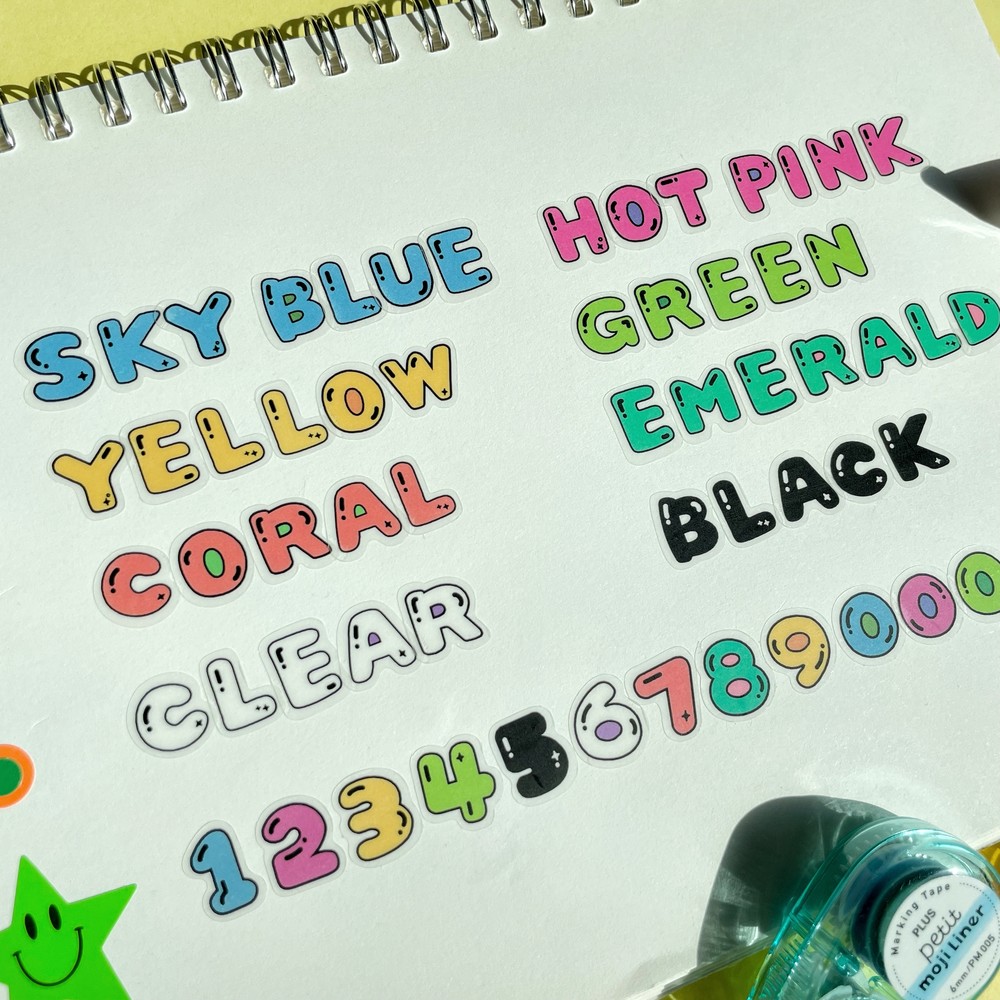 SKY BLUE
YELLOW
CORAL
CLEAR
HOT PINK
GREEN
EMERALD
BLACK
123456789000
Marking Tape
PLUS
petit
moji Liner
6mm/PM005